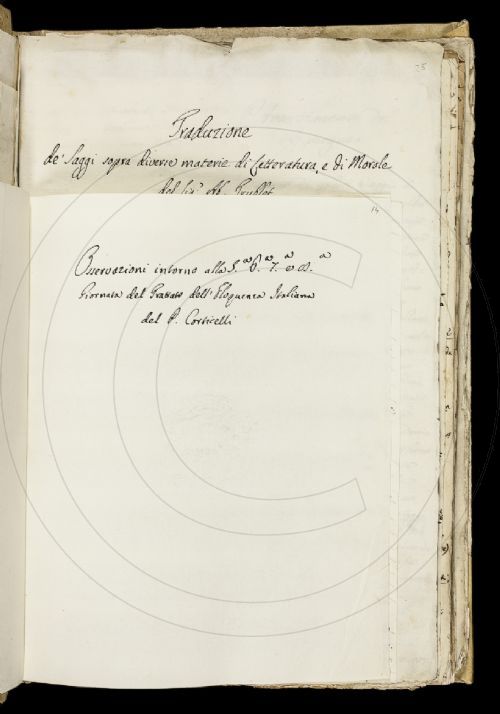 25
Traduzione
de' Saggi sopra diverse materie di Letteratura, e di Morale
del Sigr. Ab. Trublet
14
Osservazioni intorno alla 5.a 6.a 7.a e 8.a
Giornata del Trattato dell'Eloquenza Italiana
del P. Corticelli